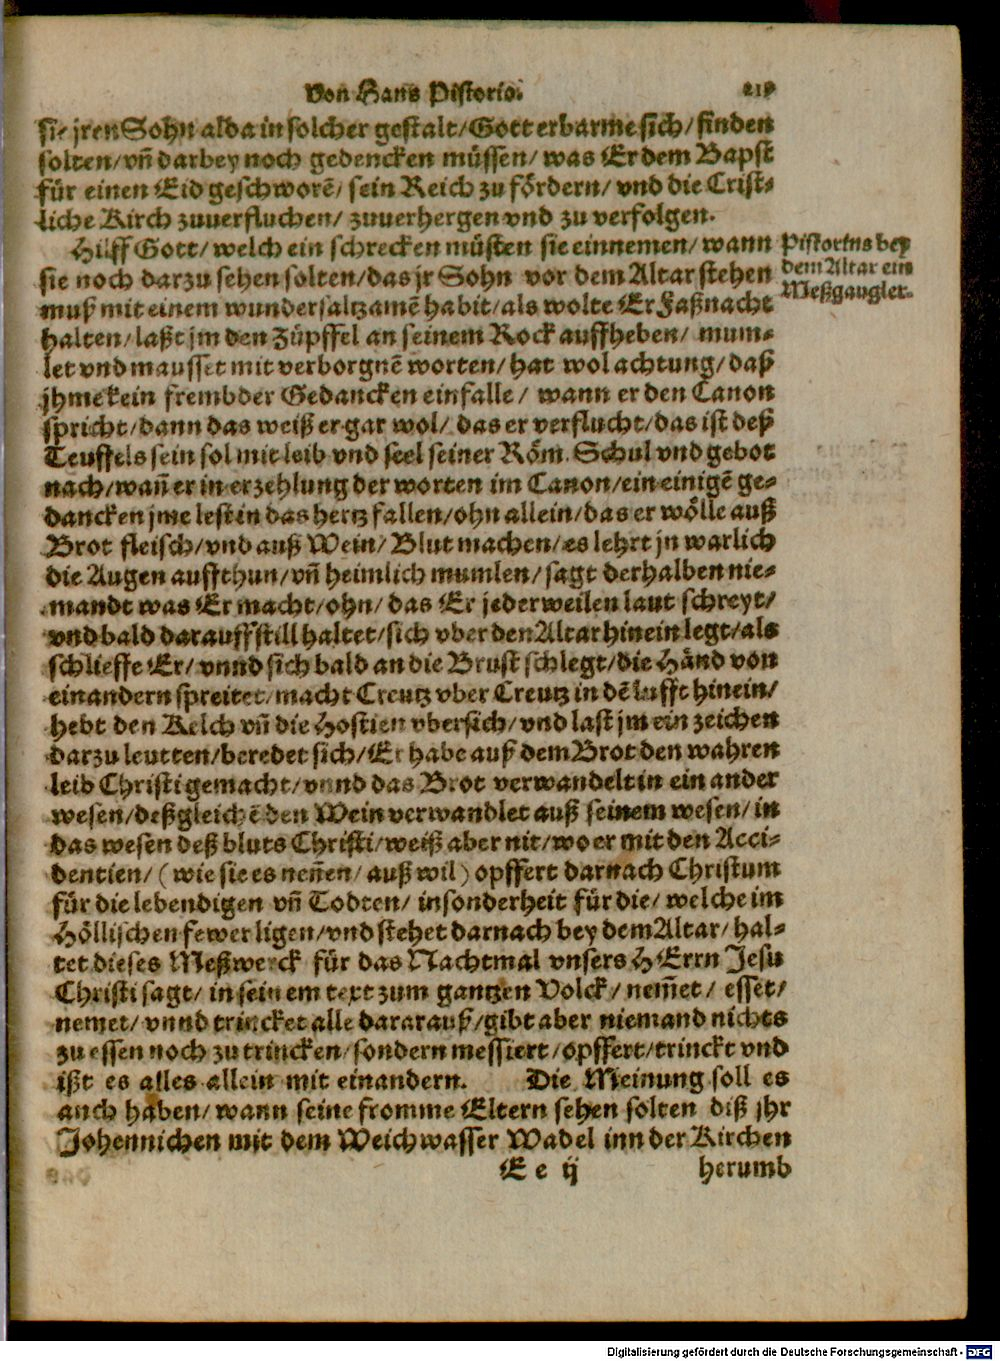 Von Hans Pistorio.
219
sie jren Sohn alda in solcher gestalt/ Gott erbarme sich/ finden
solten/ vñ darbey noch gedencken müssen/ was Er dem Bapst
für einen Eid geschworē/ sein Reich zu fördern/ vnd die Crist-
liche Kirch zuuerfluchen/ zuuerhergen vnd zu verfolgen.
Hilff Gott/ welch ein schrecken müsten sie einnemen/ wann
sie noch darzu sehen solten/ das jr Sohn vor dem Altar stehen
muß mit einem wundersaltzamē habit/ als wolte Er Faßnacht
halten/ laßt jm den Züpffel an seinem Rock auffheben/ mum-
let vnd mausset mit verborgnē worten/ hat wol achtung/ daß
jhme kein frembder Gedancken einfalle/ wann er den Canon
spricht/ dann das weiß er gar wol/ das er verflucht/ das ist deß
Teuffels sein sol mit leib vnd seel seiner Röm. Schul vnd gebot
nach/ wañ er in erzehlung der worten im Canon/ ein einigē ge-
dancken jme lest in das hertz fallen/ ohn allein/ das er wölle auß
Brot fleisch/ vnd auß Wein/ Blut machen/ es lehrt jn warlich
die Augen auffthun/ vñ heimlich mumlen/ sagt derhalben nie-
mandt was Er macht/ ohn/ das Er jederweilen laut schreyt/
vnd bald darauff still haltet/ sich vber den Altar hinein legt/ als
schlieffe Er/ vnnd sich bald an die Brust schlegt/ die Händ von
einandern spreitet/ macht Creutz vber Creutz in dē lufft hinein/
hebt den Kelch vñ die Hostien vbersich/ vnd last jm ein zeichen
darzu leutten/ beredet sich/ Er habe auß dem Brot den wahren
leib Christi gemacht/ vnnd das Brot verwandelt in ein ander
wesen/ deßgleichē den Wein verwandlet auß seinem wesen/ in
das wesen deß bluts Christi/ weiß aber nit/ wo er mit den Acci-
dentien/ (wie sie es neñen/ auß wil) opffert darnach Christum
für die lebendigen vñ Todten/ insonderheit für die/ welche im
Höllischen fewer ligen/ vnd stehet darnach bey dem Altar/ hal-
tet dieses Meßwerck für das Nachtmal vnsers HErrn Jesu
Christi sagt/ in seinem text zum gantzen Volck/ nem̃et/ esset/
nemet/ vnnd trincket alle dararauß/ gibt aber niemand nichts
zu essen noch zu trincken/ sondern messiert/ opffert/ trinckt vnd
ißt es alles allein mit einandern. Die Meinung soll es
auch haben/ wann seine fromme Eltern sehen solten diß jhr
Johennichen mit dem Weichwasser Wadel inn der Kirchen
E e ij
herumb
Pistorius bey
dem Altar ein
Meßgaugler.
Digitalisierung gefördert durch die Deutsche Forschungsgemeinschaft - DFG